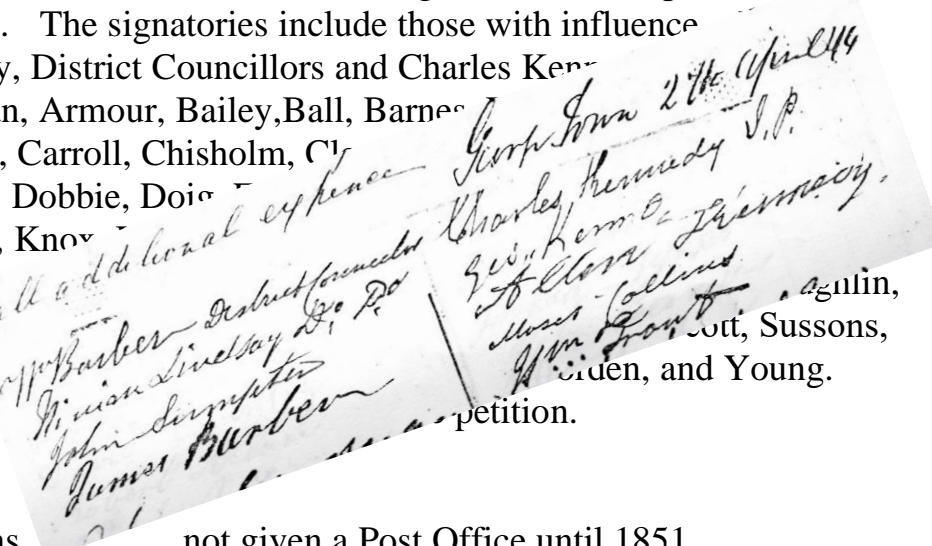 . The signatories include those with influence
y, District Councillors and Charles Kenn
n, Armour, Bailey,Ball, Barnes
, Carroll, Chisholm, Cl
Dobbie, Doig,
, Knox,
aghlin,
cott, Sussons,
orden, and Young.
petition.
not given a Post Office until 1851
additional expence
Barber District Councelor
Ninian Lindsay Do Do
John Sumpter
James Barber
George Town 27th April 44
Charles Kennedy J.P.
Geo. Kennedy
Allen Kennedy.
Moses Collins
Wm Trout